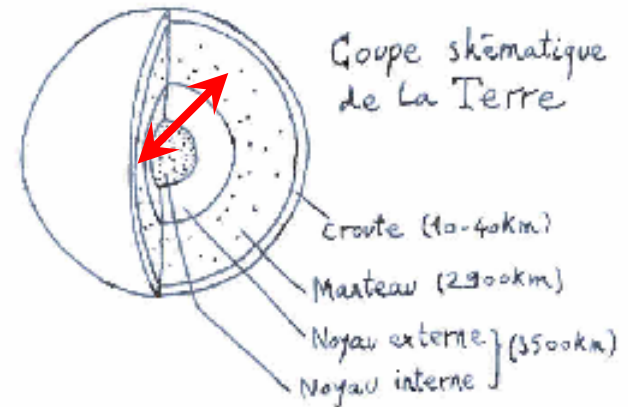 Coupe skèmatique
de La Terre
croute (10-40km)
Manteau (2900km)
Noyau externe
Noyau interne
(3500km)